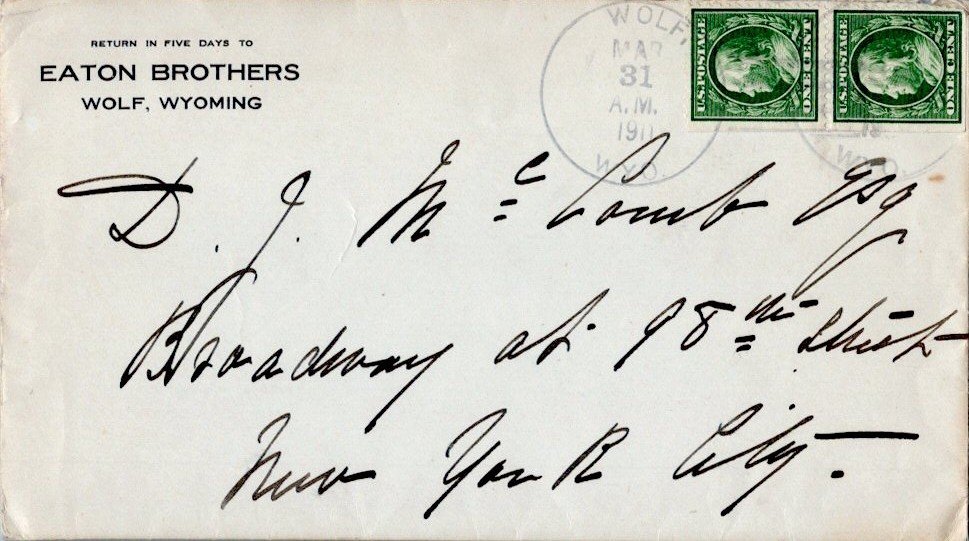 RETURN IN FIVE DAYS TO
EATON BROTHERS
WOLF, WYOMING
WOLF,
MAR
31
A.M.
191
WYO.
U.S. POSTAGE
ONE CENT
U.S. POSTAGE
ONE CENT
WYO.
D. J. Mc Comb Esq
Broadway at 98th Street
New York City.